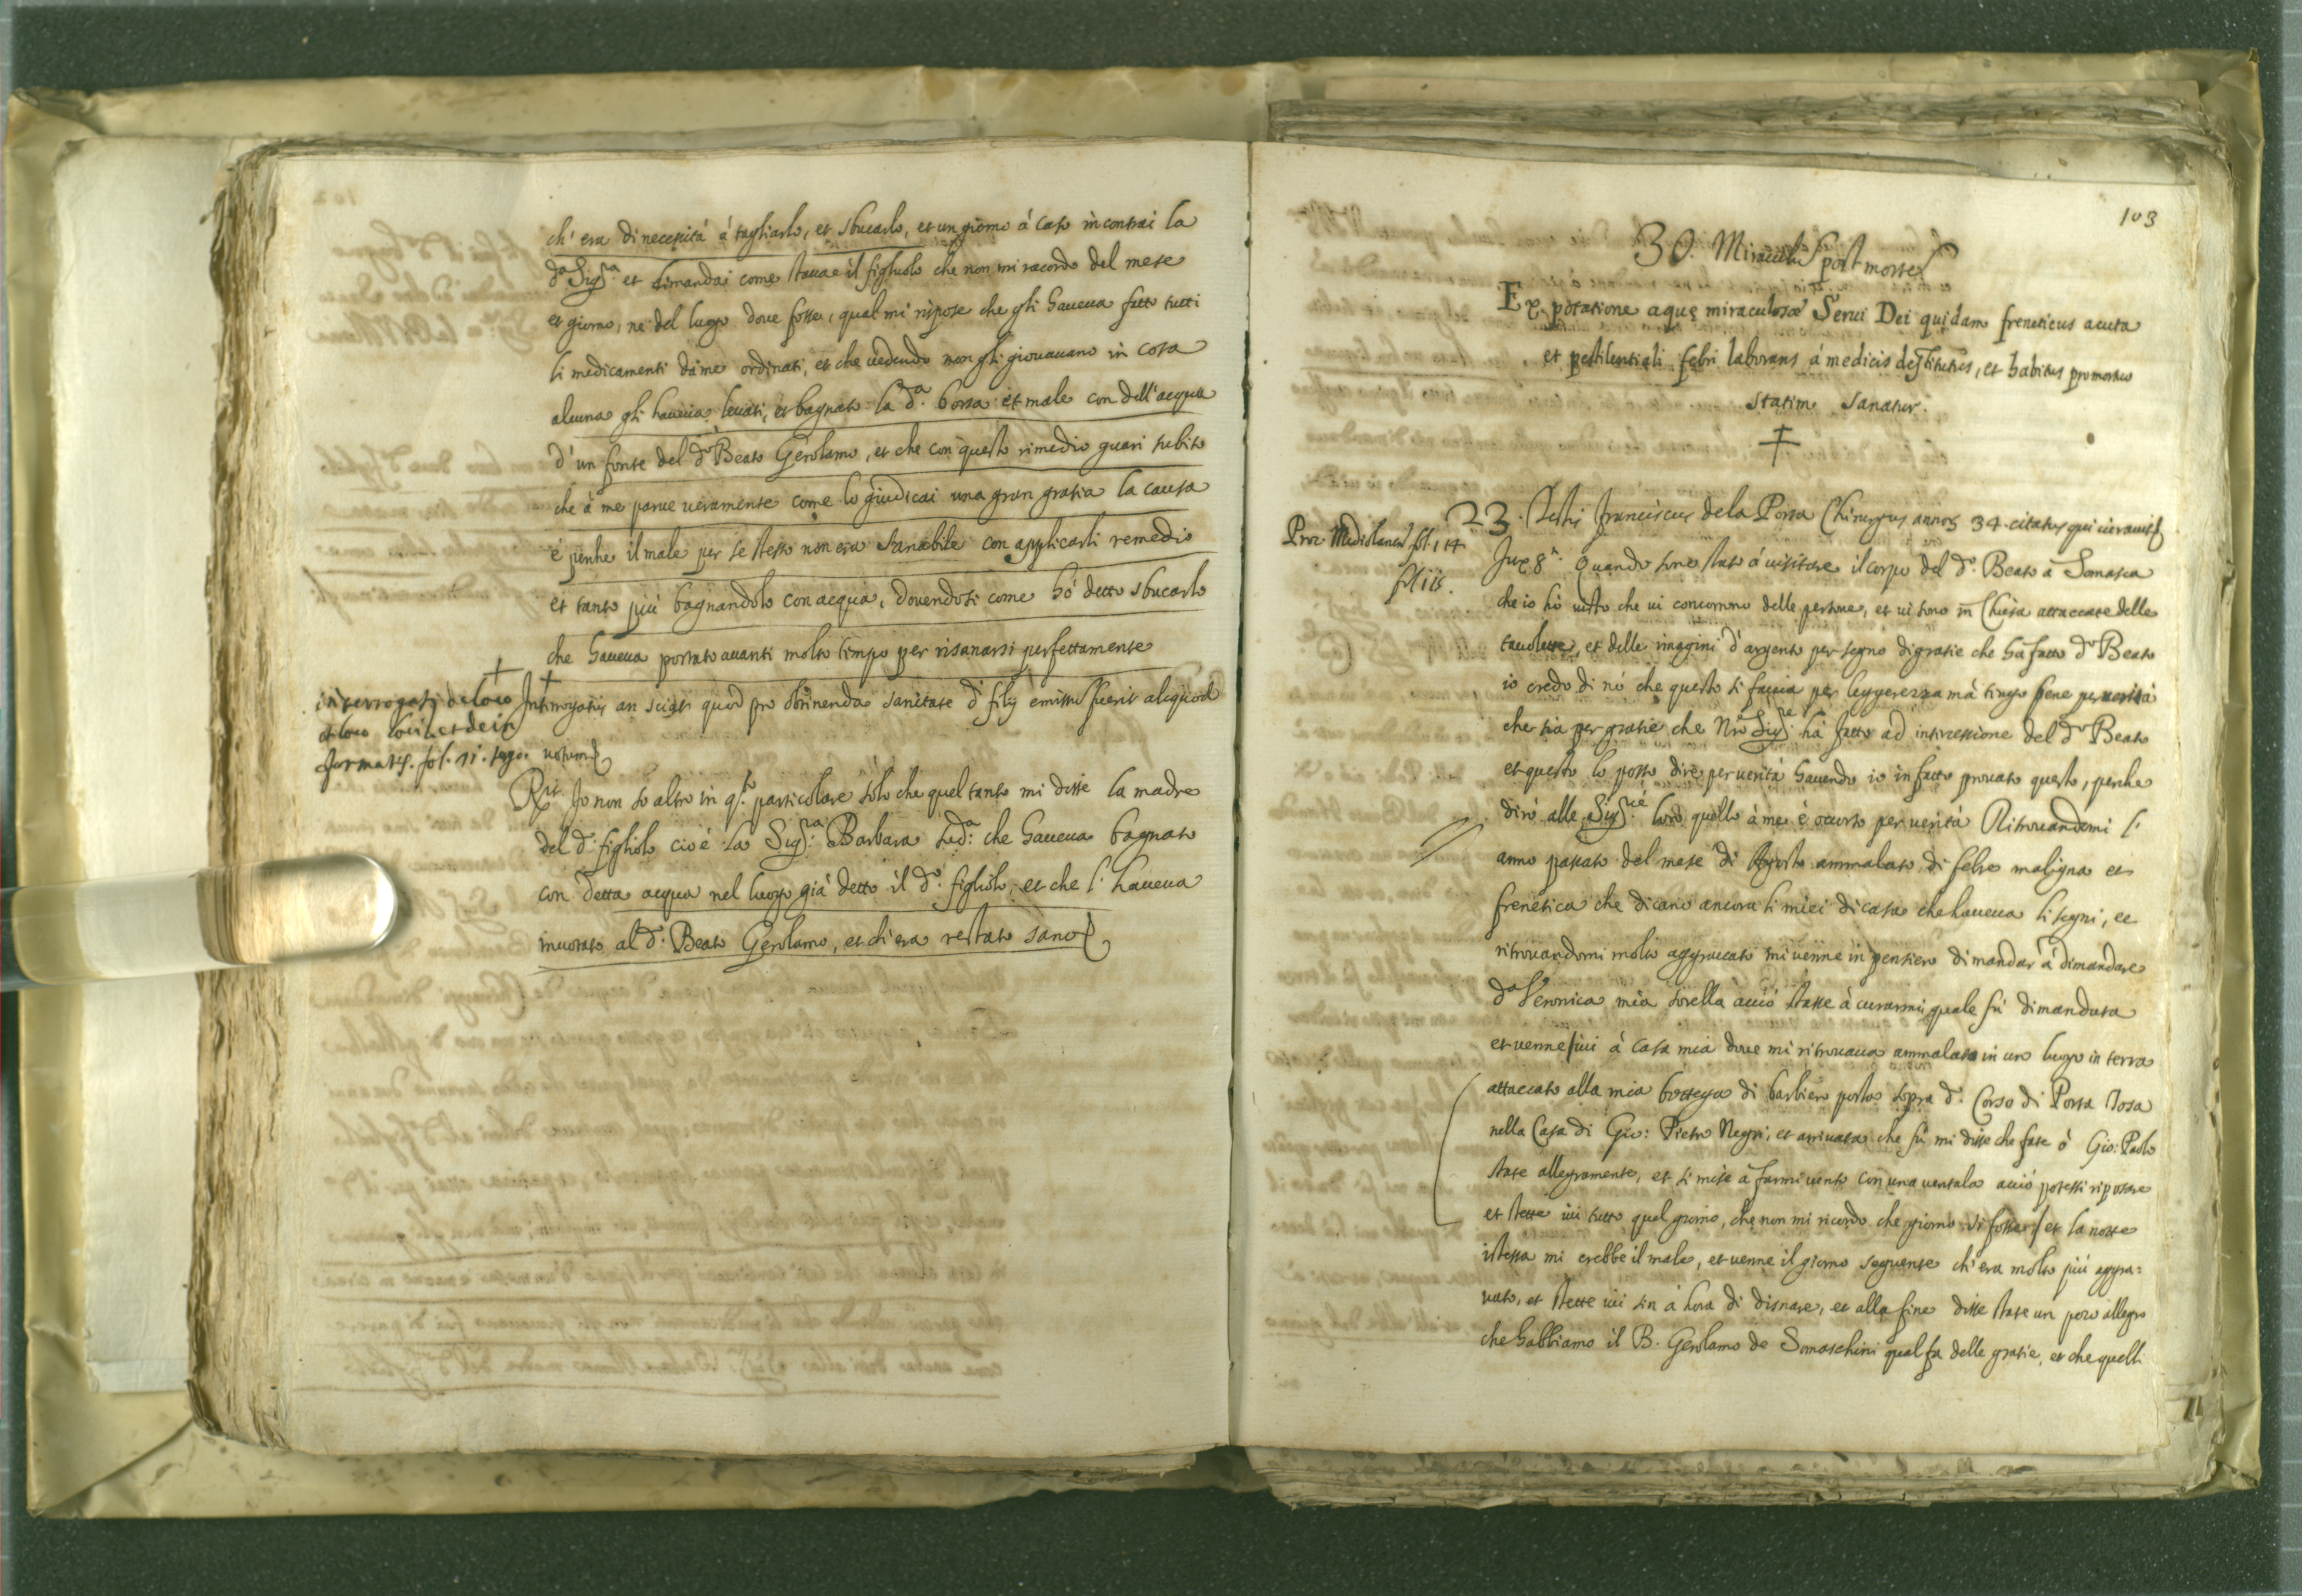 ch' era di necessità à tagliarlo, et sbucarlo, et un giorno à caso incontrai la
d.a Sig.ra et dimandai come staua il figliuolo che non mi racordo del mese
et giorno, ne del luogo doue fosse, qual mi rispose che gli haueua fatto tutti
li medicamenti dà me ordinati, et che uedendo non gli giouauano in cosa
alcuna gli haueua leuati, et bagnato la d.a borsa et male con dell'acqua
d'un fonte del d.o Beato Gerolamo, et che con questo rimedio guari subito
che à me parue ueramente come lo giudicai una gran gratia la causa
é perche il male per se stesso non era sanabile con applicarli remedio
et tanto più bagnandolo con acqua, douendosi come hò detto sbucarlo
che haueua portato auanti molto tempo per risanarsi perfettamente
Interrogatus an sciat quod pro obtinenda sanitate d. filij emissum fuerit aliquod
uotum
interrogatus de loco
et loco loci et dein
format. fol. 11. tergo.
R.it Io non so altro in q.to particolare solo che quel tanto mi disse la madre
del d. figliolo cioè la Sig.ra Barbara sud.a che haueua bagnato
con detta acqua nel luogo già detto il d.o figliolo, et che l' haueua
inuotato al d. Beato Gerolamo, et ch'era restato sano
103
30. Miraculum post mortem
Ex potatione aquę miraculosæ Serui Dei quidam freneticus acuta
et pestilentiali febri laborans á medicis destitutus, et habitus pro mortuo
statim sanatur.
23. Testis Franciscus de la Porta Chirurgus annor 34. citatus qui iurauit
Proc. Mediolanen. fol. 114
foliis.
Sup 8.o Quando sono stato á uisitare il corpo del d.o Beato à Somasca
che io hò uisto che ui concorrono delle persone, et ui sono in Chiesa attaccate delle
tauolette, et delle imagini d'argento per segno di gratie che hà fatto d.o Beato
io credo di nò che questo si faccia per leggerezza mà tengo bene per uerità
che sia per gratie che Nro Sig.re hà fatto ad intercessione del d.o Beato
et questo lo posso dire per uerità hauendo io in fatto prouato questo, perche
dirò alle Sig.rie loro quello à me è occorso per uerità Ritrouandomi l'
anno passato del mese di Agosto ammalato di febre maligna et
frenetica che dicano ancora li miei di casa che haueua li segni, et
ritrouandomi molto aggrauato mi uenne in pensiero di mandar à dimandare
d.a Veronica mia sorella acciò stasse à curarmi quale fù dimandata
et uenne iui à casa mia doue mi ritrouaua ammalato in un luogo in terra
attaccato alla mia bottega di barbiero posta sopra d. Corso di Porta Tosa
nella Casa di Gio: Pietro Negri, et arriuata che fù mi disse che fate ò Gio: Paolo
state allegramente, et si mise à farmi uento con una uentala acciò potessi riposare
et stette iui tutto quel giorno, che non mi ricordo che giorno si fosse et la notte
istessa mi crebbe il male, et uenne il giorno seguente ch'era molto più aggra=
uato, et stette iui sin à hora di disnare, et alla fine disse state un poco allegro
che habbiamo il B. Gerolamo de Somaschini qual fa delle gratie, et che quelli